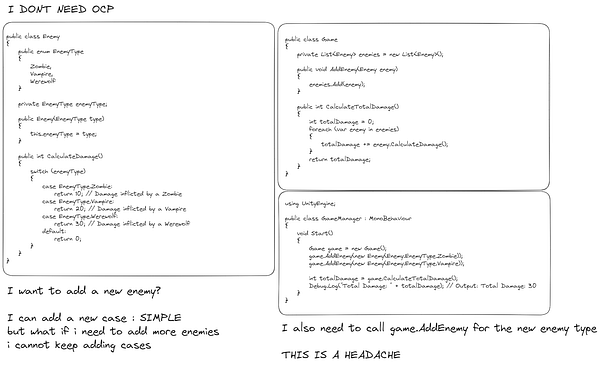 I DONT NEED OCP
public class Enemy
{
public enum EnemyType
{
Zombie,
Vampire,
Werewolf
}
private EnemyType enemyType;
public Enemy(EnemyType type)
{
this.enemyType = type;
}
public int CalculateDamage()
{
switch (enemyType)
{
case EnemyType.Zombie:
return 10; // Damage inflicted by a Zombie
case EnemyType.Vampire:
return 20; // Damage inflicted by a Vampire
case EnemyType.Werewolf:
return 30; // Damage inflicted by a Werewolf
default:
return 0;
}
}
}
I want to add a new enemy?
I can add a new case : SIMPLE
but what if i need to add more enemies
i cannot keep adding cases
public class Game
{
private List<Enemy> enemies = new List<Enemy>();
public void AddEnemy(Enemy enemy)
{
enemies.Add(enemy);
}
public int CalculateTotalDamage()
{
int totalDamage = 0;
foreach (var enemy in enemies)
{
totalDamage += enemy.CalculateDamage();
}
return totalDamage;
}
}
using UnityEngine;
public class GameManager : MonoBehaviour
{
void Start()
{
Game game = new Game();
game.AddEnemy(new Enemy(Enemy.EnemyType.Zombie));
game.AddEnemy(new Enemy(Enemy.EnemyType.Vampire));
int totalDamage = game.CalculateTotalDamage();
Debug.Log("Total Damage: " + totalDamage); // Output: Total Damage: 30
}
}
I also need to call game.AddEnemy for the new enemy type
THIS IS A HEADACHE